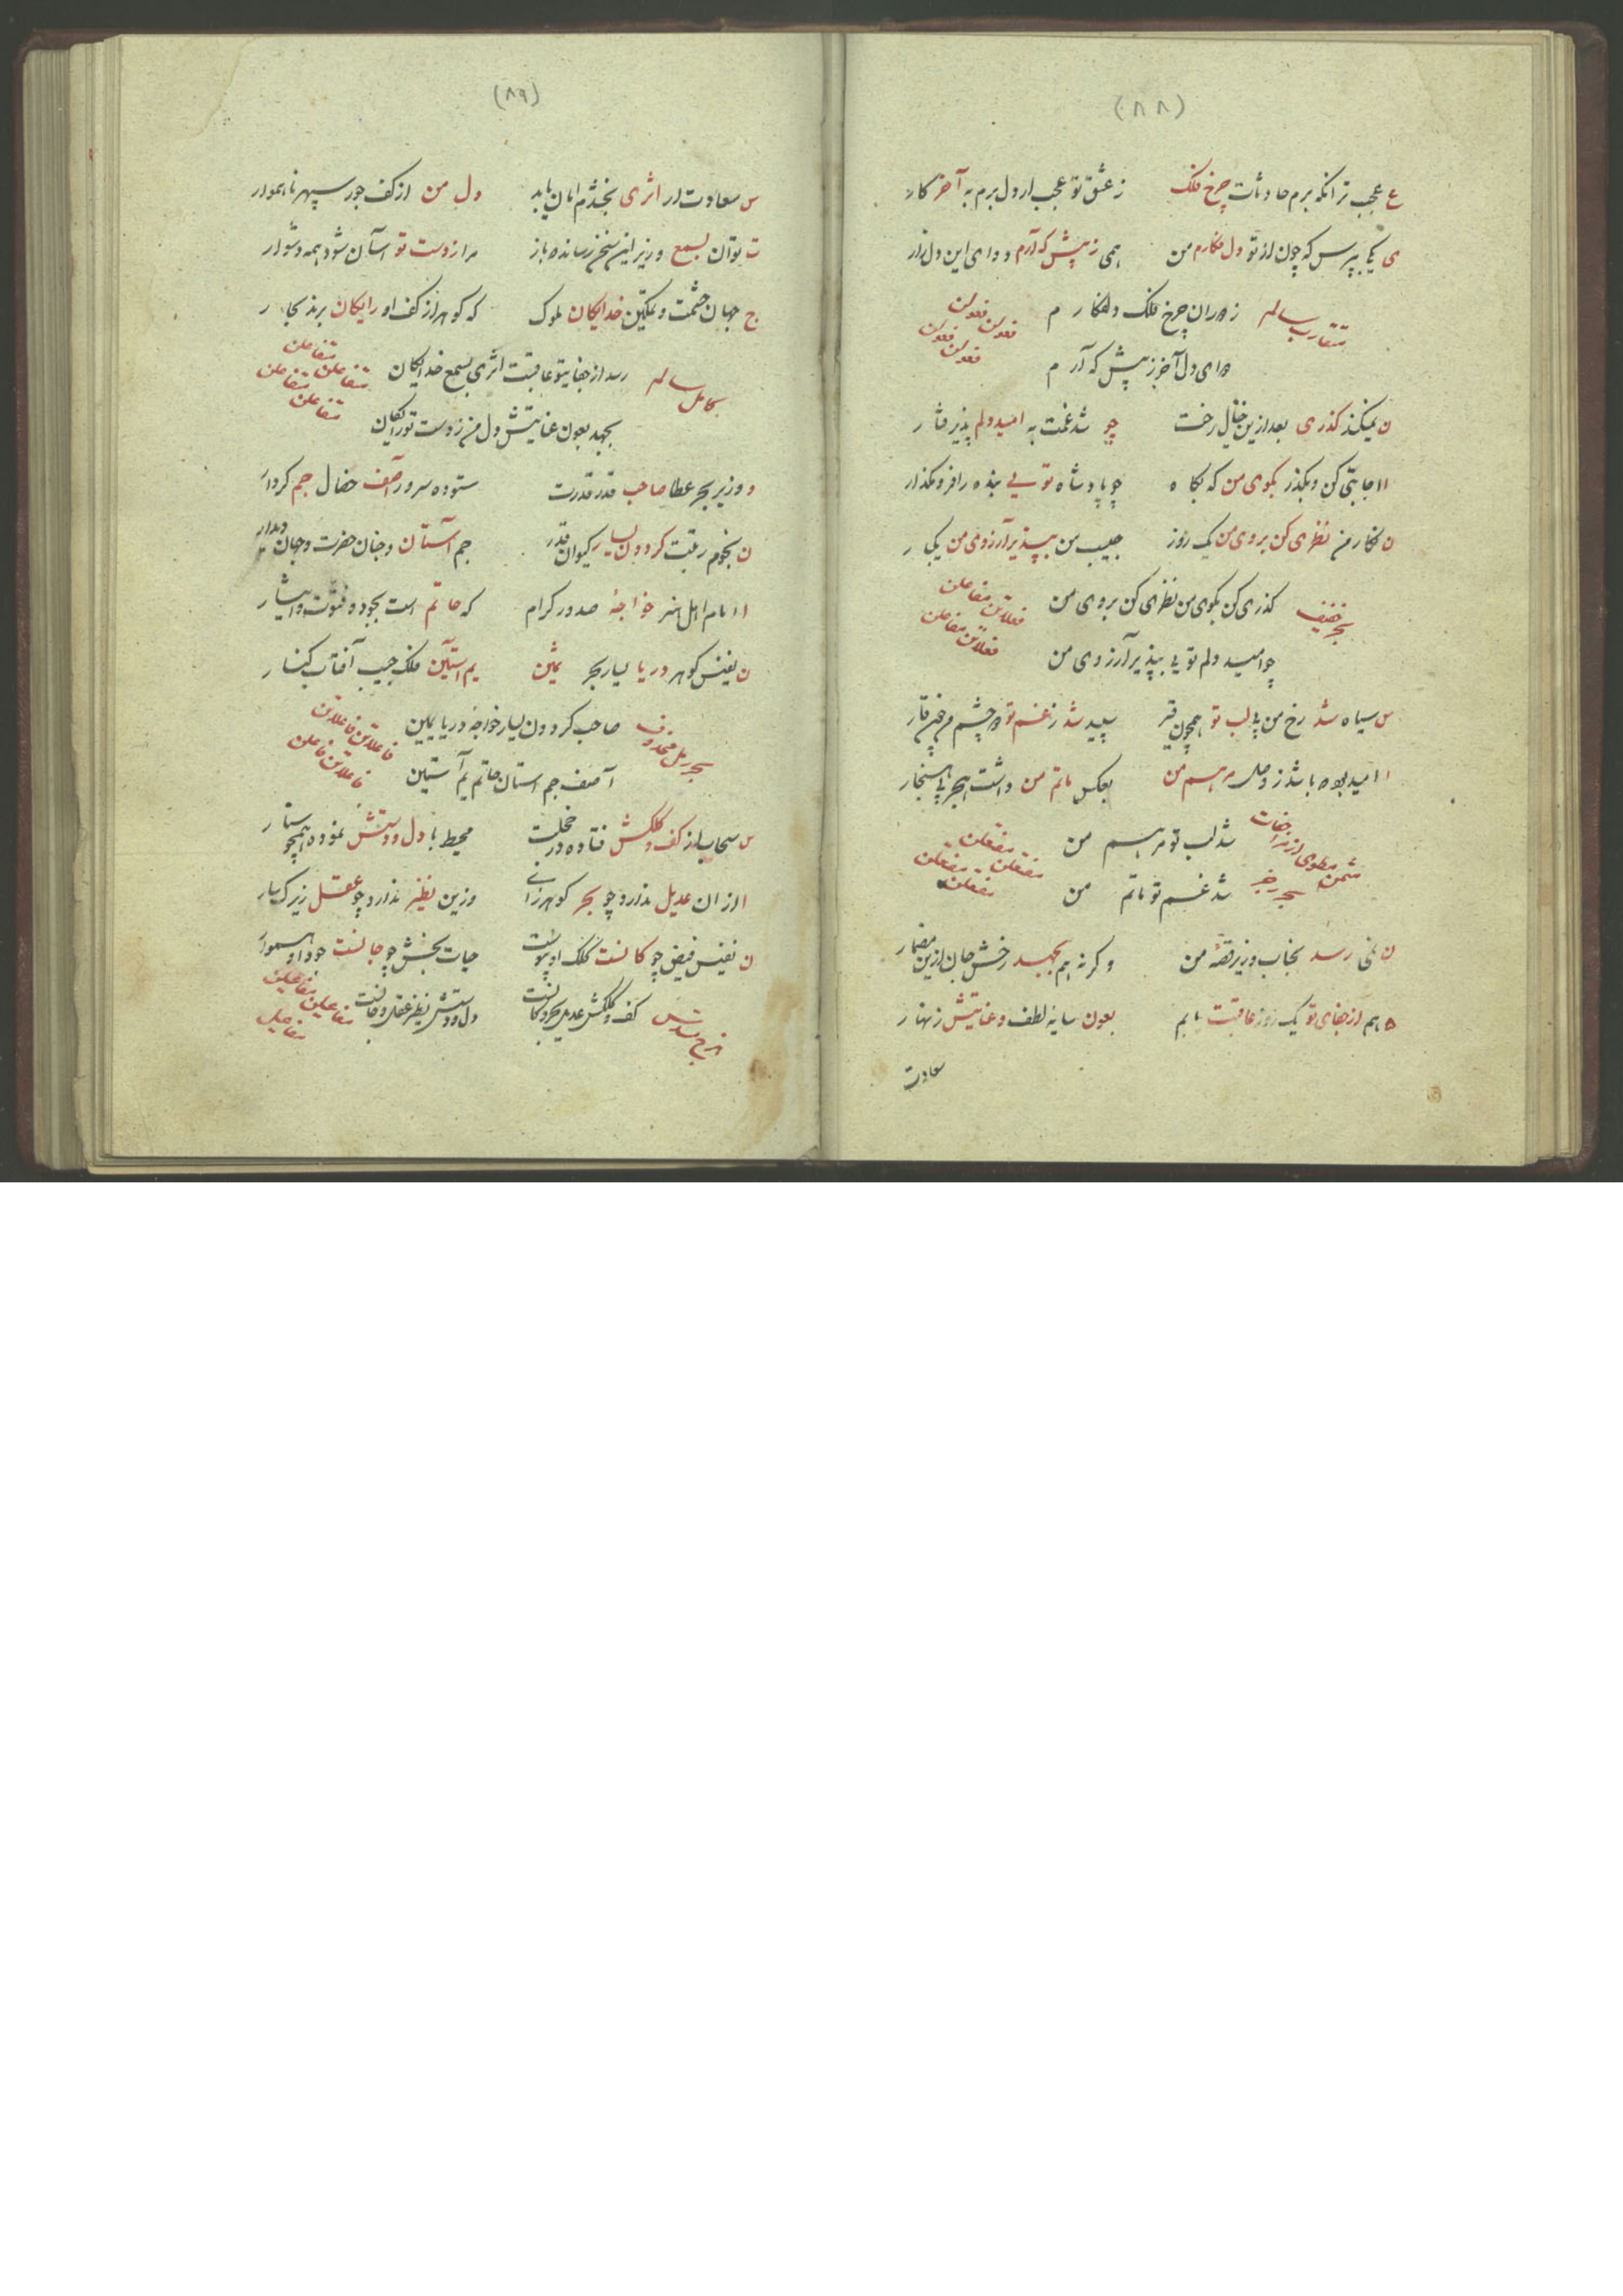 (۸۸)
ع عجب تر انکه برم حادثات چرخ فلک ز عشق تو عجب ار دل برم به آخر کار
ی یکی بپرس که چون از تو دل فکارم من همی ز پیش که آرم دوای این دل زار
متقارب سالم ز دوران چرخ فلک دلفکارم
فعولن فعولن فعولن فعولن
دوای دل آخر ز پیش که آرم
ن نمیکند گذری بعد ازین خیال رخت چو شد غمت به امید دلم پذیرفتار
ا اجابتی کن و بگذر بکوی من که نکاه چو پادشاه تویی بنده را فرو مگذار
ن نکار من نظری کن بروی من یک روز حبیب من بپذیر آرزوی من یکبار
بحر خفیف گذری کن بکوی من نظری کن بروی من
فعلاتن مفاعلن فعلاتن مفاعلن
چو امید دلم تویی بپذیر آرزوی من
س سیاه شد رخ من بی لب تو همچون قیر سپید شد ز غم تو دو چشم من چون قار
ا امید بود باشد ز وصل مرهم من بعکس ماتم من داشت هجر بی هنجار
شد لب تو مرهم من
مثمن مطوی از زحافات بحر رجز
مفتعلن مفتعلن مفتعلن مفتعلن
شد غم تو ماتم من
ن نمی رسد بجناب وزیر قصهٔ من وکرنه هم بجهد رخش جان ازین مضمار
ه هم از جفای تو یک روز عاقبت یابم بعون سایهٔ لطف و عنایتش زنهار
سعادت
(۸۹)
س سعادت ار اثری بخشدم امان یابد دل من از کف جور سپهر ناهموار
ت توان بسمع وزیر این سخن رسانده باز مرا ز دست تو آسان شود همه دشوار
ج جهان حشمت و تمکین خدایکان ملوک که کوهر از کف او رایکان برند بحار
کامل سالم رسد از جفایتو عاقبت اثری بسمع خدایکان
متفاعلن متفاعلن متفاعلن متفاعلن
بجهد بعون عنایتش دل من ز دست تو رایکان
و وزیر بحر عطا صاحب قدر قدرت ستوده سرور آصف خصال جم کردار
ن نجوم رتبت کردون یسار کیوان قدر جم آستان و جنان حضرت و جهان دیدار
ا امام اهل هنر خواجهٔ صدور کرام که حاتم است بجود و فتوت و ایثار
ن نفیس کوهر دریا یسار بحر یمین یم آستین فلک جیب آفتاب کنار
بحر رمل محذوف صاحب کردون یسار خواجه دریا یمین
فاعلاتن فاعلاتن فاعلن
آصف جم استان حاتم یم آستین
س سحاب از کف و کلکش فتاده در خجلت محیط با دل و دستش نموده همچو
ا از ان عدیل ندارد چو بحر کوهرزای وزین نظیر ندارد چو عقل زیرک سار
ن نفیس فیض چو کانست کلک او پیوست حیات بخش چو جانست جود او هموار
هزج مسدس کف و کلکش عدیل بحر و کانست دل و دستش نظیر عقل و جانست
مفاعیلن مفاعیلن مفاعیل